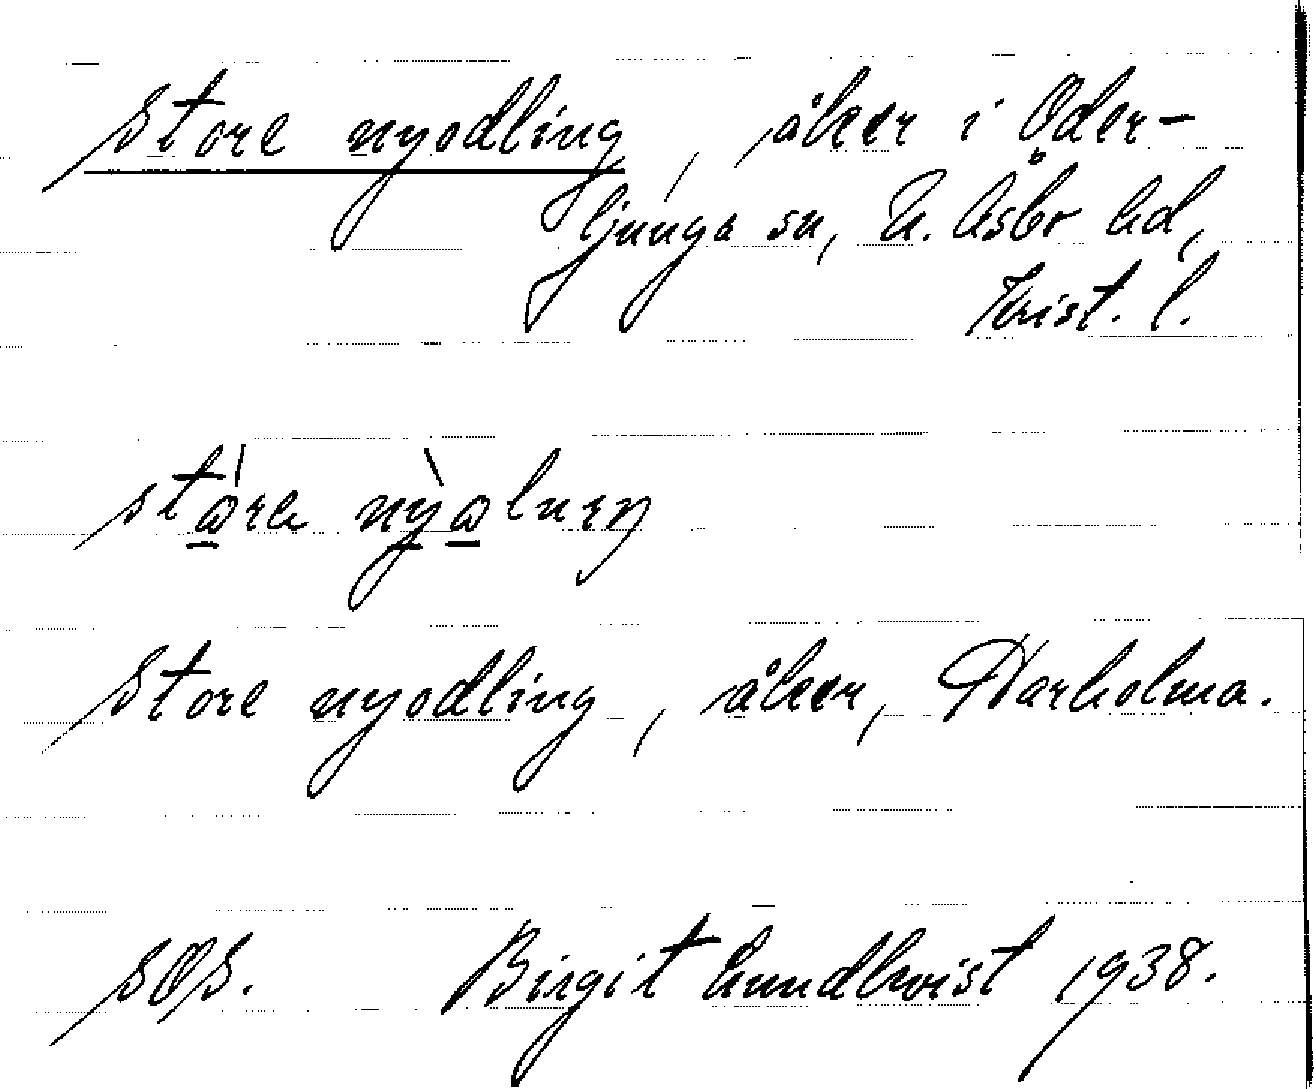 Store nyodling, åker i Oder-
ljunga sn, N. Åsbo hd,
Krist. l.
Store nyodling, åker, Harholma.
SOS. Birgit Lundkvist 1938.